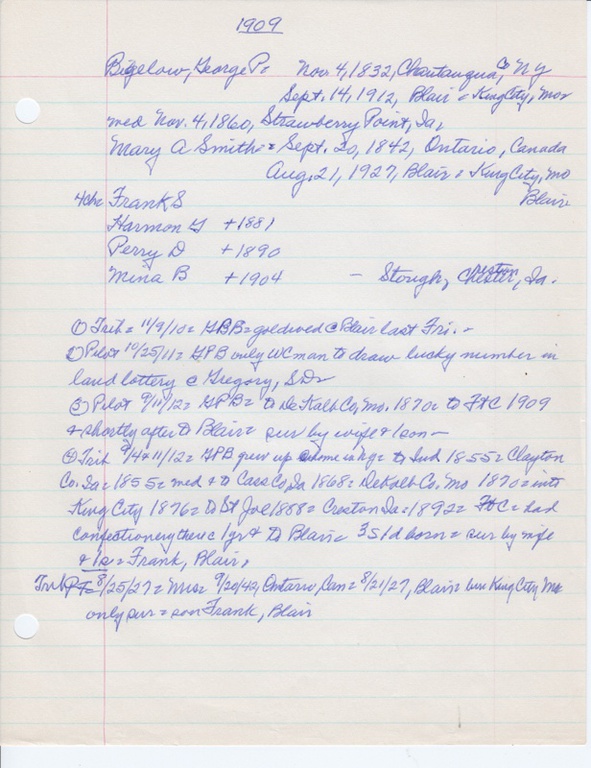 1909
Bigelow, George P= Nov. 4, 1832, Chautauqua, Co NY
Sept. 14, 1912, Blair = King City, Mo=
med Nov. 4, 1860, Strawberry Point, Ia,
Mary A Smith = Sept. 20, 1842, Ontario, Canada
Aug. 21, 1927, Blair = King City, Mo
4ch= Frank S Blair
Harmon G +1881
Perry D +1890
Mina B +1904 — Stough, Creston, Ia.
① Trib = 11/9/10 = GPB = goldwed @ Blair last Fri. =
② Pilot 10/25/11 = GPB only WC man to draw lucky number in
land lottery @ Gregory, SD=
③ Pilot 9/11/12 = GPB = to DeKalb Co, Mo. 1870 = to FtC 1909
& shortly after to Blair = sur by wife & 1 son —
④ Trib 9/4 & 11/12 = GPB grew up = to Ind 1855 = Clayton
Co. Ia = 1855 = med & to Cass Co, Ia 1868 = DeKalb Co, Mo 1870 = into
King City 1876 = to St Joe 1888 = Creston Ia = 1892 = FtC = had
confectionery there 1 yr & to Blair = 3s 1d born = sur by wife
& 1s = Frank, Blair,
Trib PT = 8/25/27 = Mrs = 9/20/42, Ontario, Can = 8/21/27, Blair = bur King City Mo
only sur = son Frank, Blair